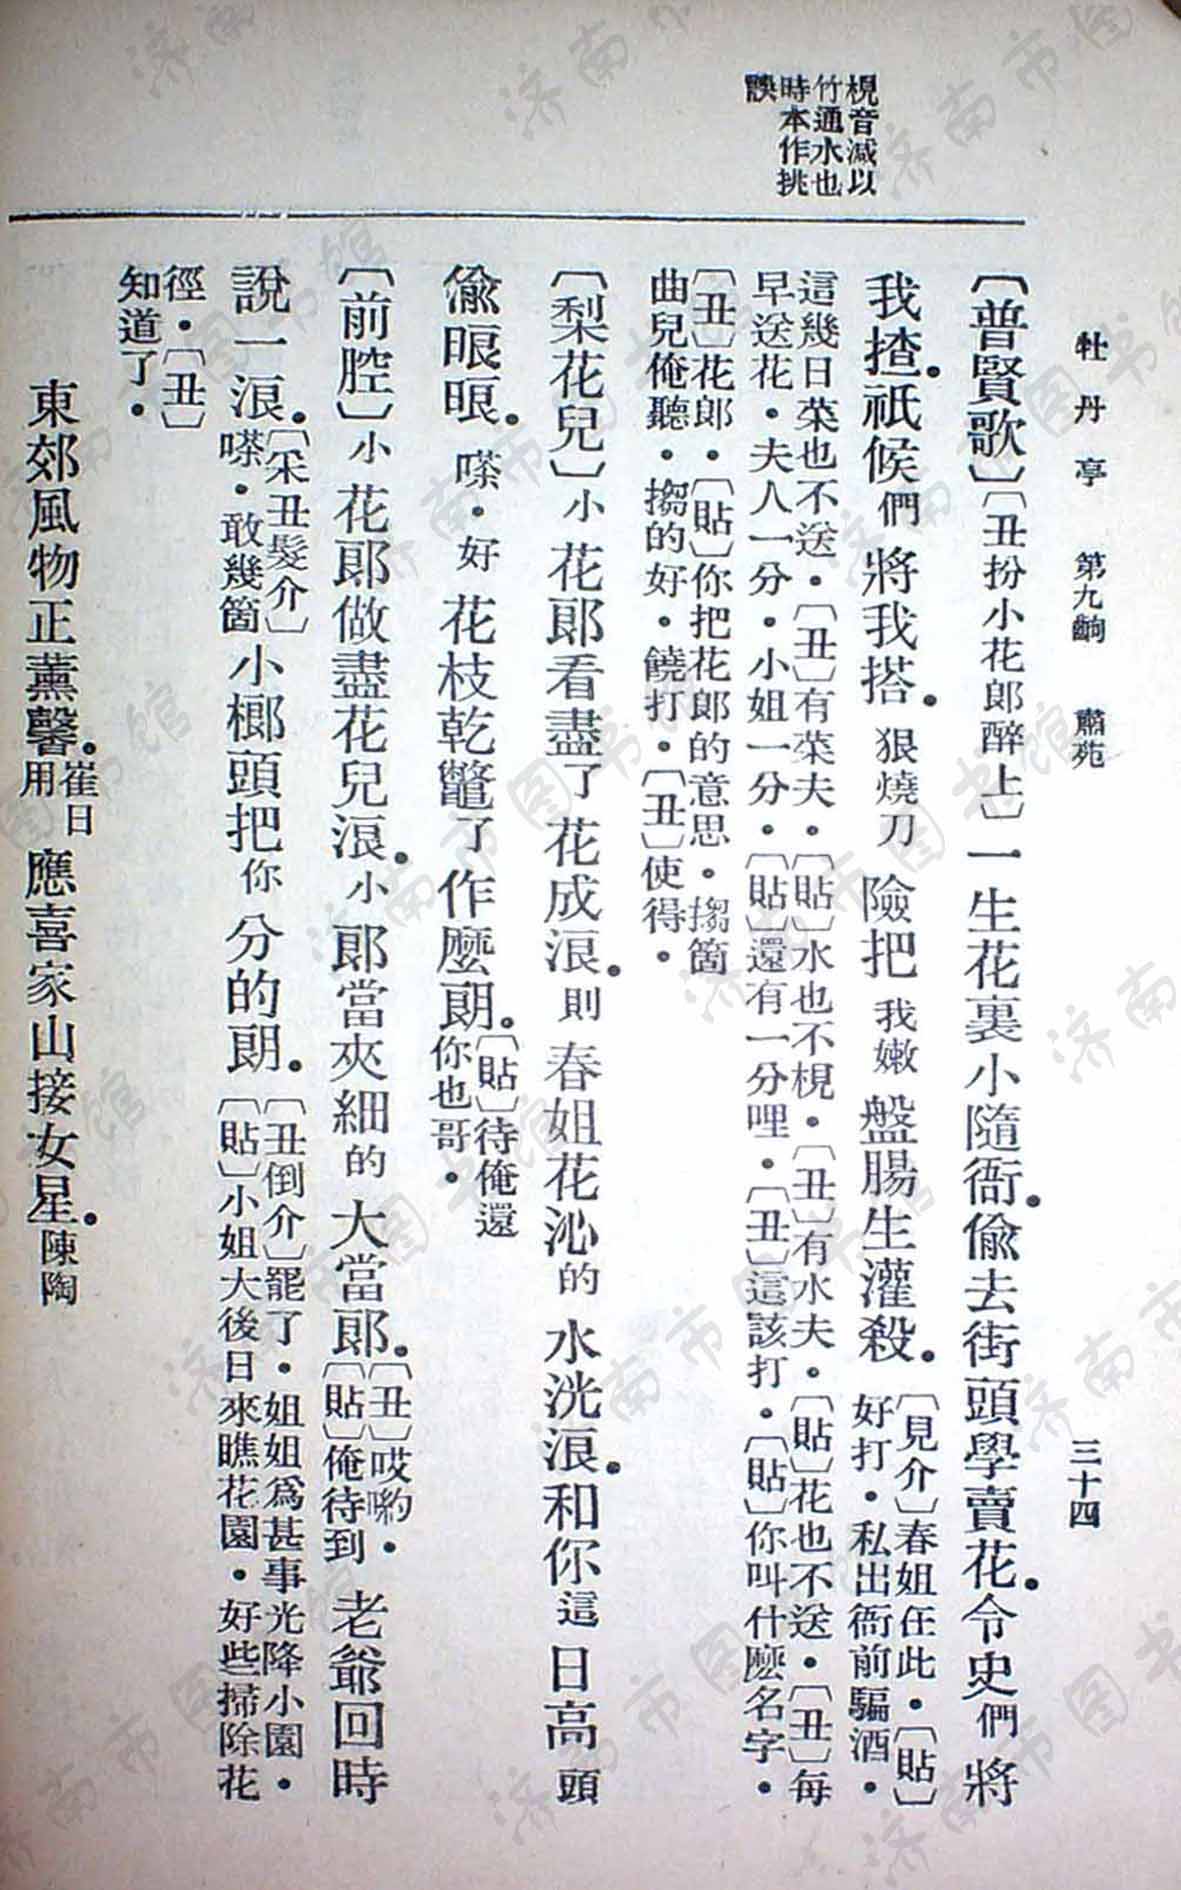 牡丹亭　第九齣　肅苑　三十四
梘音減以
竹通水也
時本作挑
誤
〔普賢歌〕〔丑扮小花郎醉上〕一生花裏小隨衙。偷去街頭學賣花。令史們將
我揸。祇候們將我搭。狠燒刀險把我嫩盤腸生灌殺。〔見介〕春姐在此．〔貼〕
好打．私出衙前騙酒．
這幾日菜也不送．〔丑〕有菜夫．〔貼〕水也不梘．〔丑〕有水夫．〔貼〕花也不送．〔丑〕每
早送花．夫人一分．小姐一分．〔貼〕還有一分哩．〔丑〕這該打．〔貼〕你叫什麼名字．
〔丑〕花郎．〔貼〕你把花郎的意思．搊箇
曲兒俺聽．搊的好．饒打．〔丑〕使得．
〔梨花兒〕小花郎看盡了花成浪。則春姐花沁的水洸浪。和你這日高頭
偷眼眼。嗏．好花枝乾鱉了作麼朗。〔貼〕待俺還
你也哥．
〔前腔〕小花郎做盡花兒浪。小郎當夾細的大當郎。〔丑〕哎喲．
〔貼〕俺待到老爺回時
說一浪。〔采丑髮介〕
嗏．敢幾箇小榔頭把你分的朗。〔丑倒介〕罷了．姐姐爲甚事光降小園．
〔貼〕小姐大後日來瞧花園．好些掃除花
徑．〔丑〕
知道了．
東郊風物正薰馨。崔日
用應喜家山接女星。陳陶